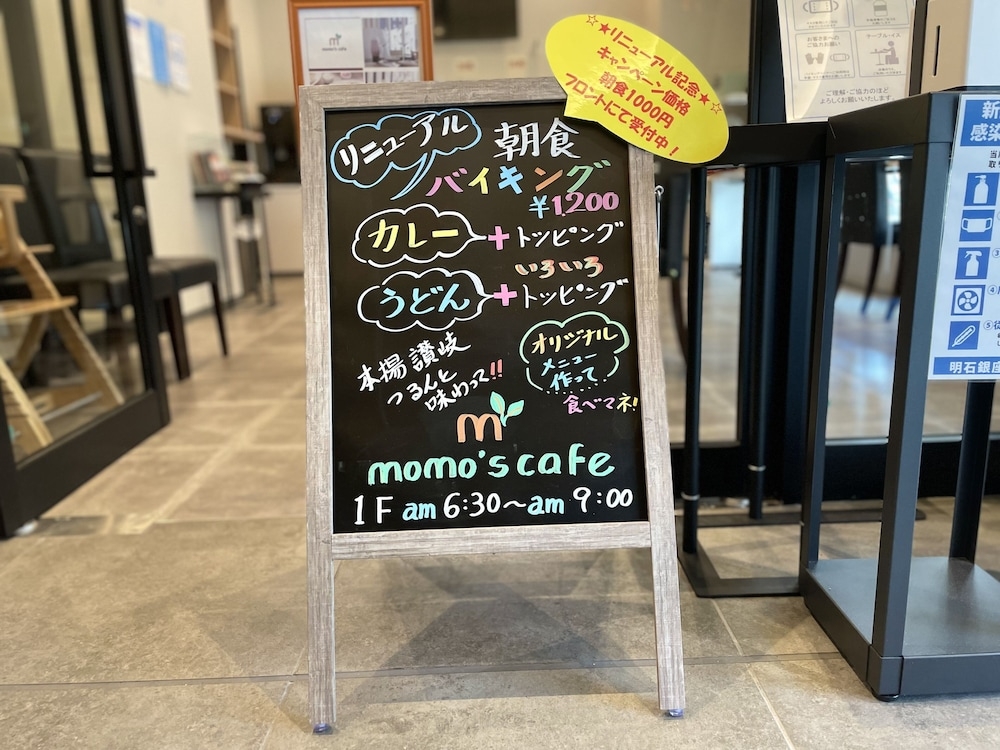 momo's cafe
☆★リニューアル記念★☆
キャンペーン価格
朝食1000円
フロントにて受付中！
リニューアル
朝食
バイキング
¥1,200
カレー+トッピング
いろいろ
うどん+トッピング
本場讃岐
つるんと
味わって!!
オリジナル
メニュー
作って
食べマネ!
m
momo's cafe
1F am 6:30～am 9:00
お客さまへの
ご協力お願い
テーブル・イス
ご理解・ご協力のほど
よろしくお願いいたします。
新
感染
当
取
③
④
⑤従
明石銀座